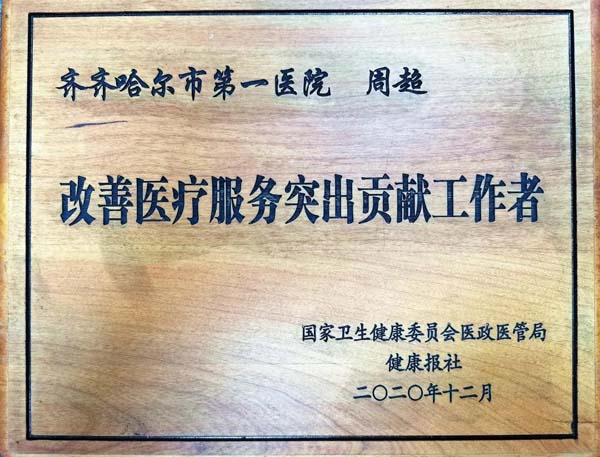 齐齐哈尔市第一医院 周超
改善医疗服务突出贡献工作者
国家卫生健康委员会医政医管局
健康报社
二〇二〇年十二月